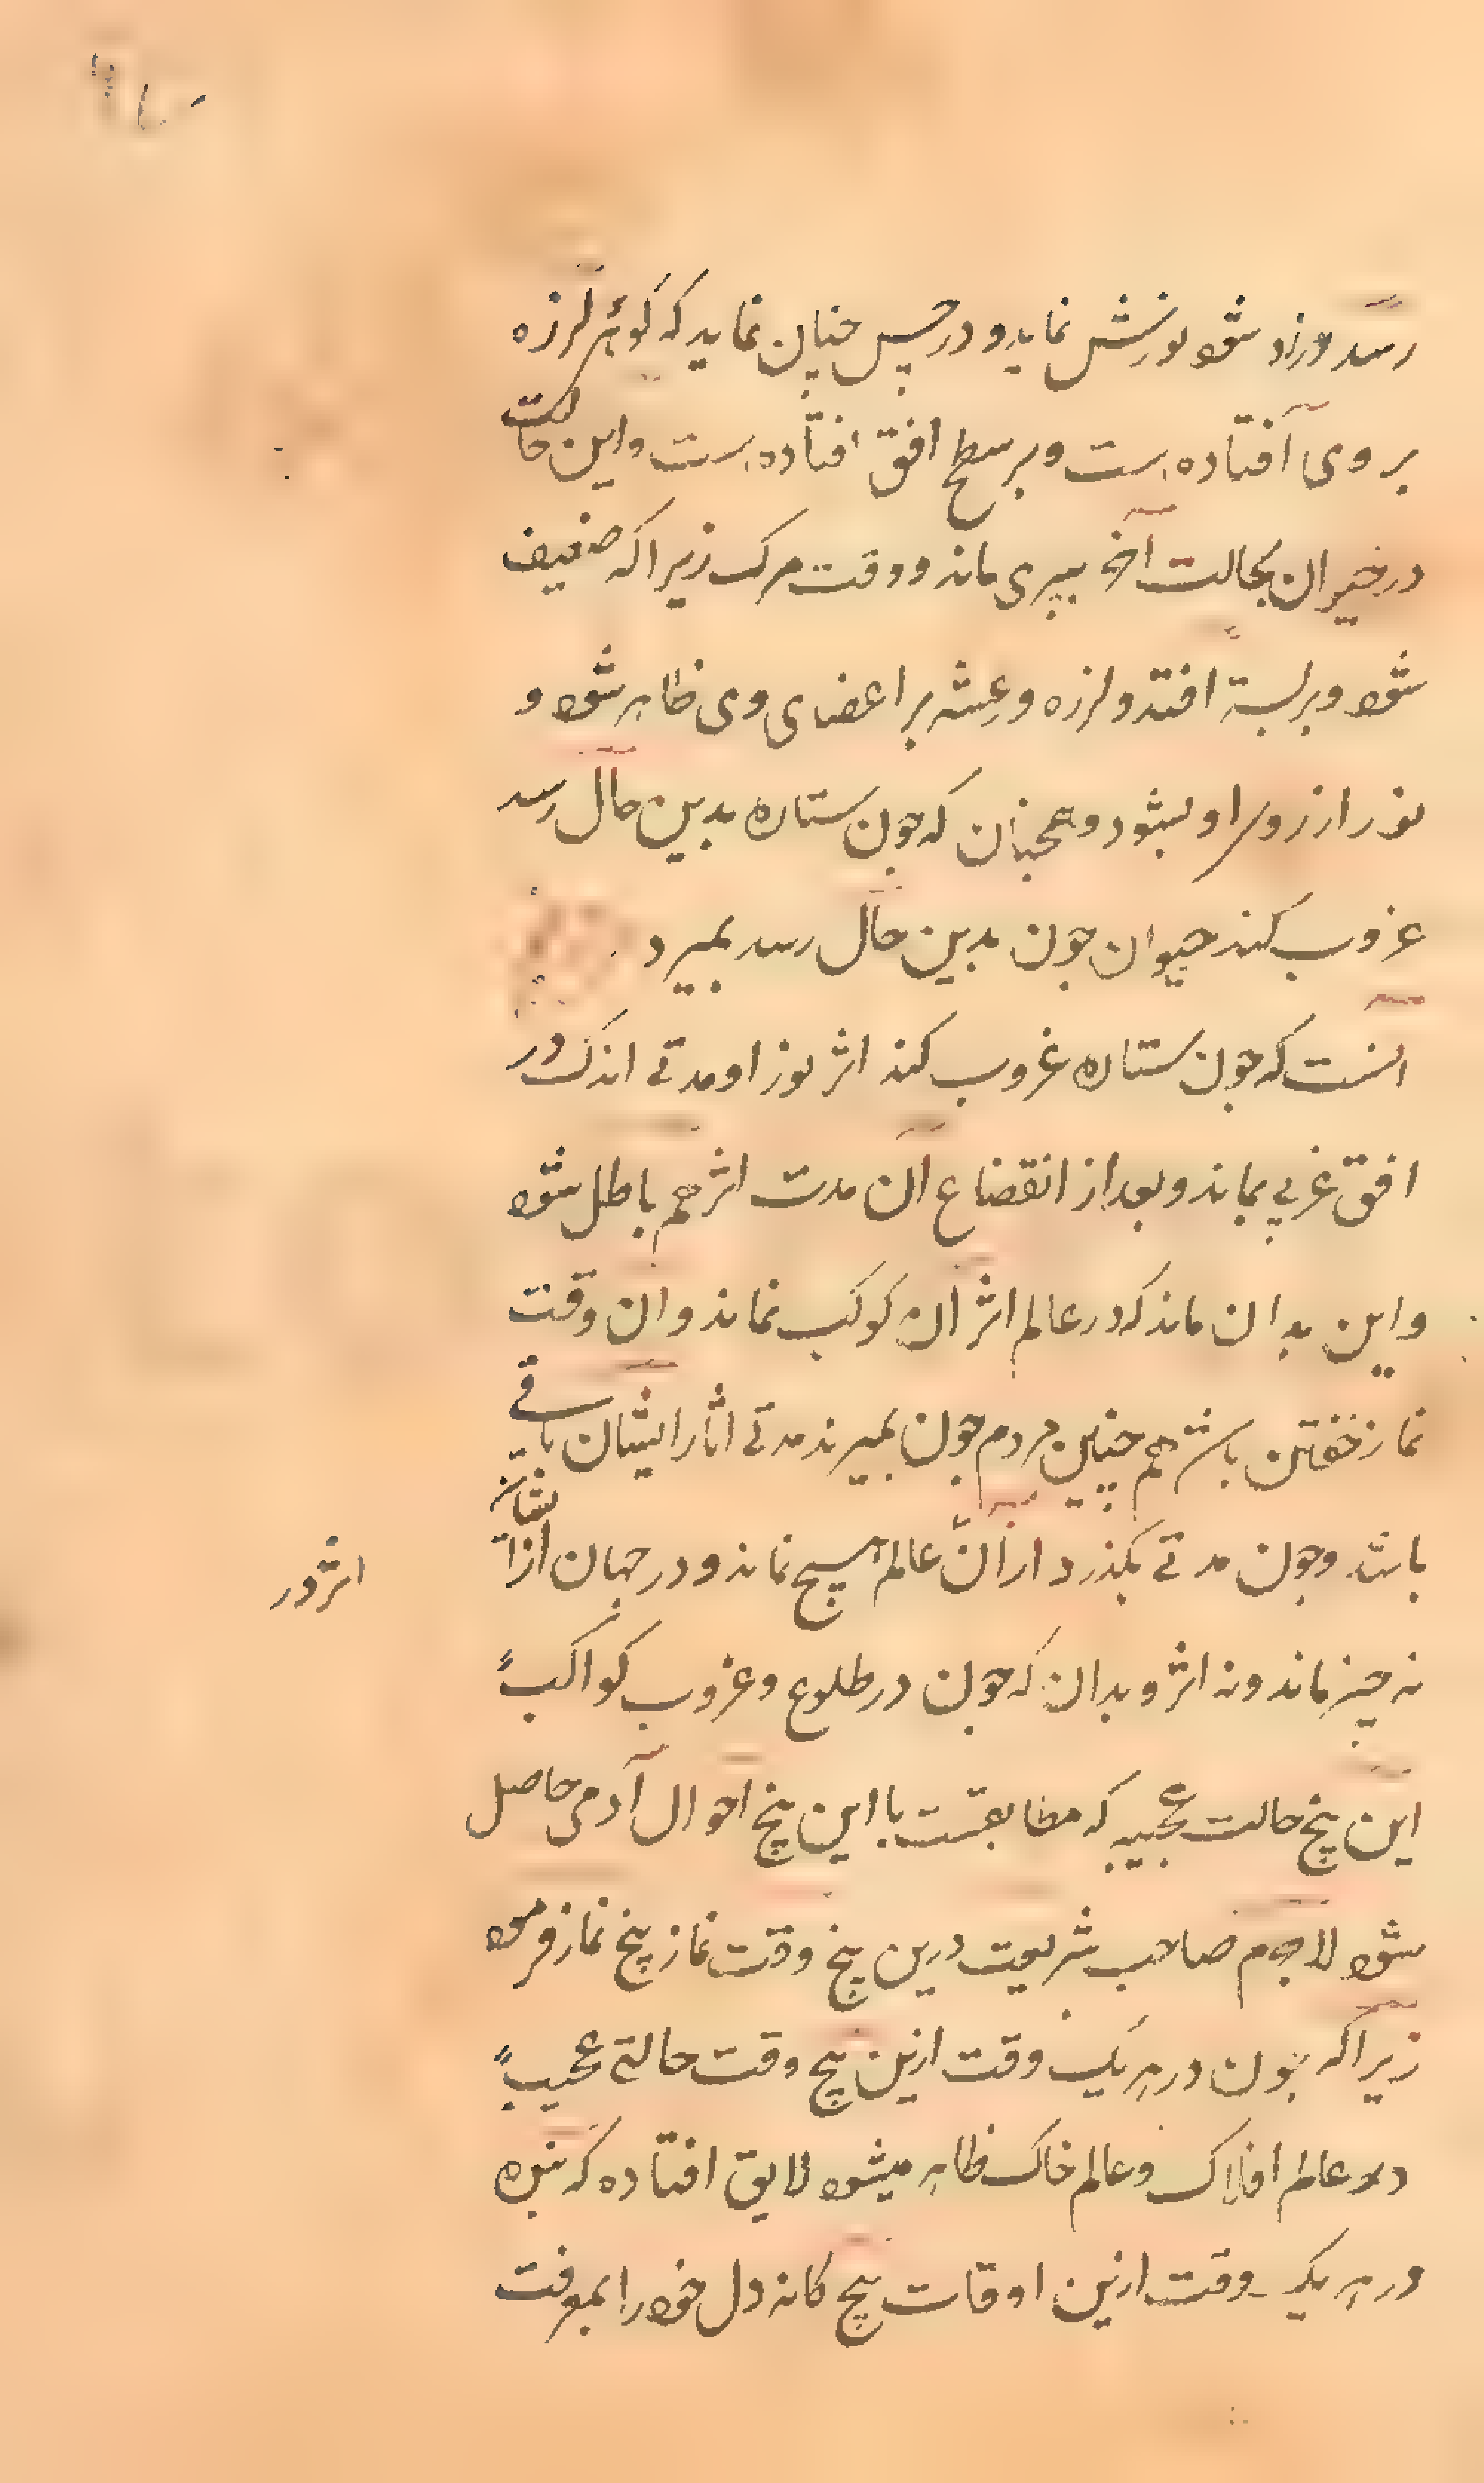 رسد و زرد شود نورش نماید و در حس چنان نماید که گوئی لرزه
بر وی آفتاده است و بر سطح افق افتاده است و این حالت
در حیوان بحالت آخر پیری ماند و وقت مرک زیرا که ضعیف
شود و بر بستر افتد و لرزه و رعشه بر اعضای وی ظاهر شود و
نور از روی او بشود و همچنان که چون ستاره بدین حال رسد
غروب کند حیوان چون بدین حال رسد بمیرد
انست که چون ستاره غروب کند اثر نور او مدتے اندک در
افق غربے بماند و بعد از انقضاع آن مدت اثر هم باطل شود
و این بدان ماند که در عالم اثر آن کوکب نماند و ان وقت
نماز خفتن باشد هم چنین مردم چون بمیرند مدتے اثار ایشان باقے
باشد و چون مدتے بکذرد از آن عالم هیچ نماند و در جهان از ایشان
اثر ور
نه چیز ماند و نه اثر و بدان که چون در طلوع و غروب کواکب
این پنج حالت عجیبه که مطابقست با این پنج احوال آدمی حاصل
شود لا جرم صاحب شریعت درین پنج وقت نماز پنج نماز فرمود
زیرا که چون در هر یک وقت ازین پنج وقت حالتے عجیب
در عالم افلاک و عالم خاک ظاهر میشود لایق افتاده که بنده
در هر یک وقت ازین اوقات پنج کانه دل خود را بمعرفت